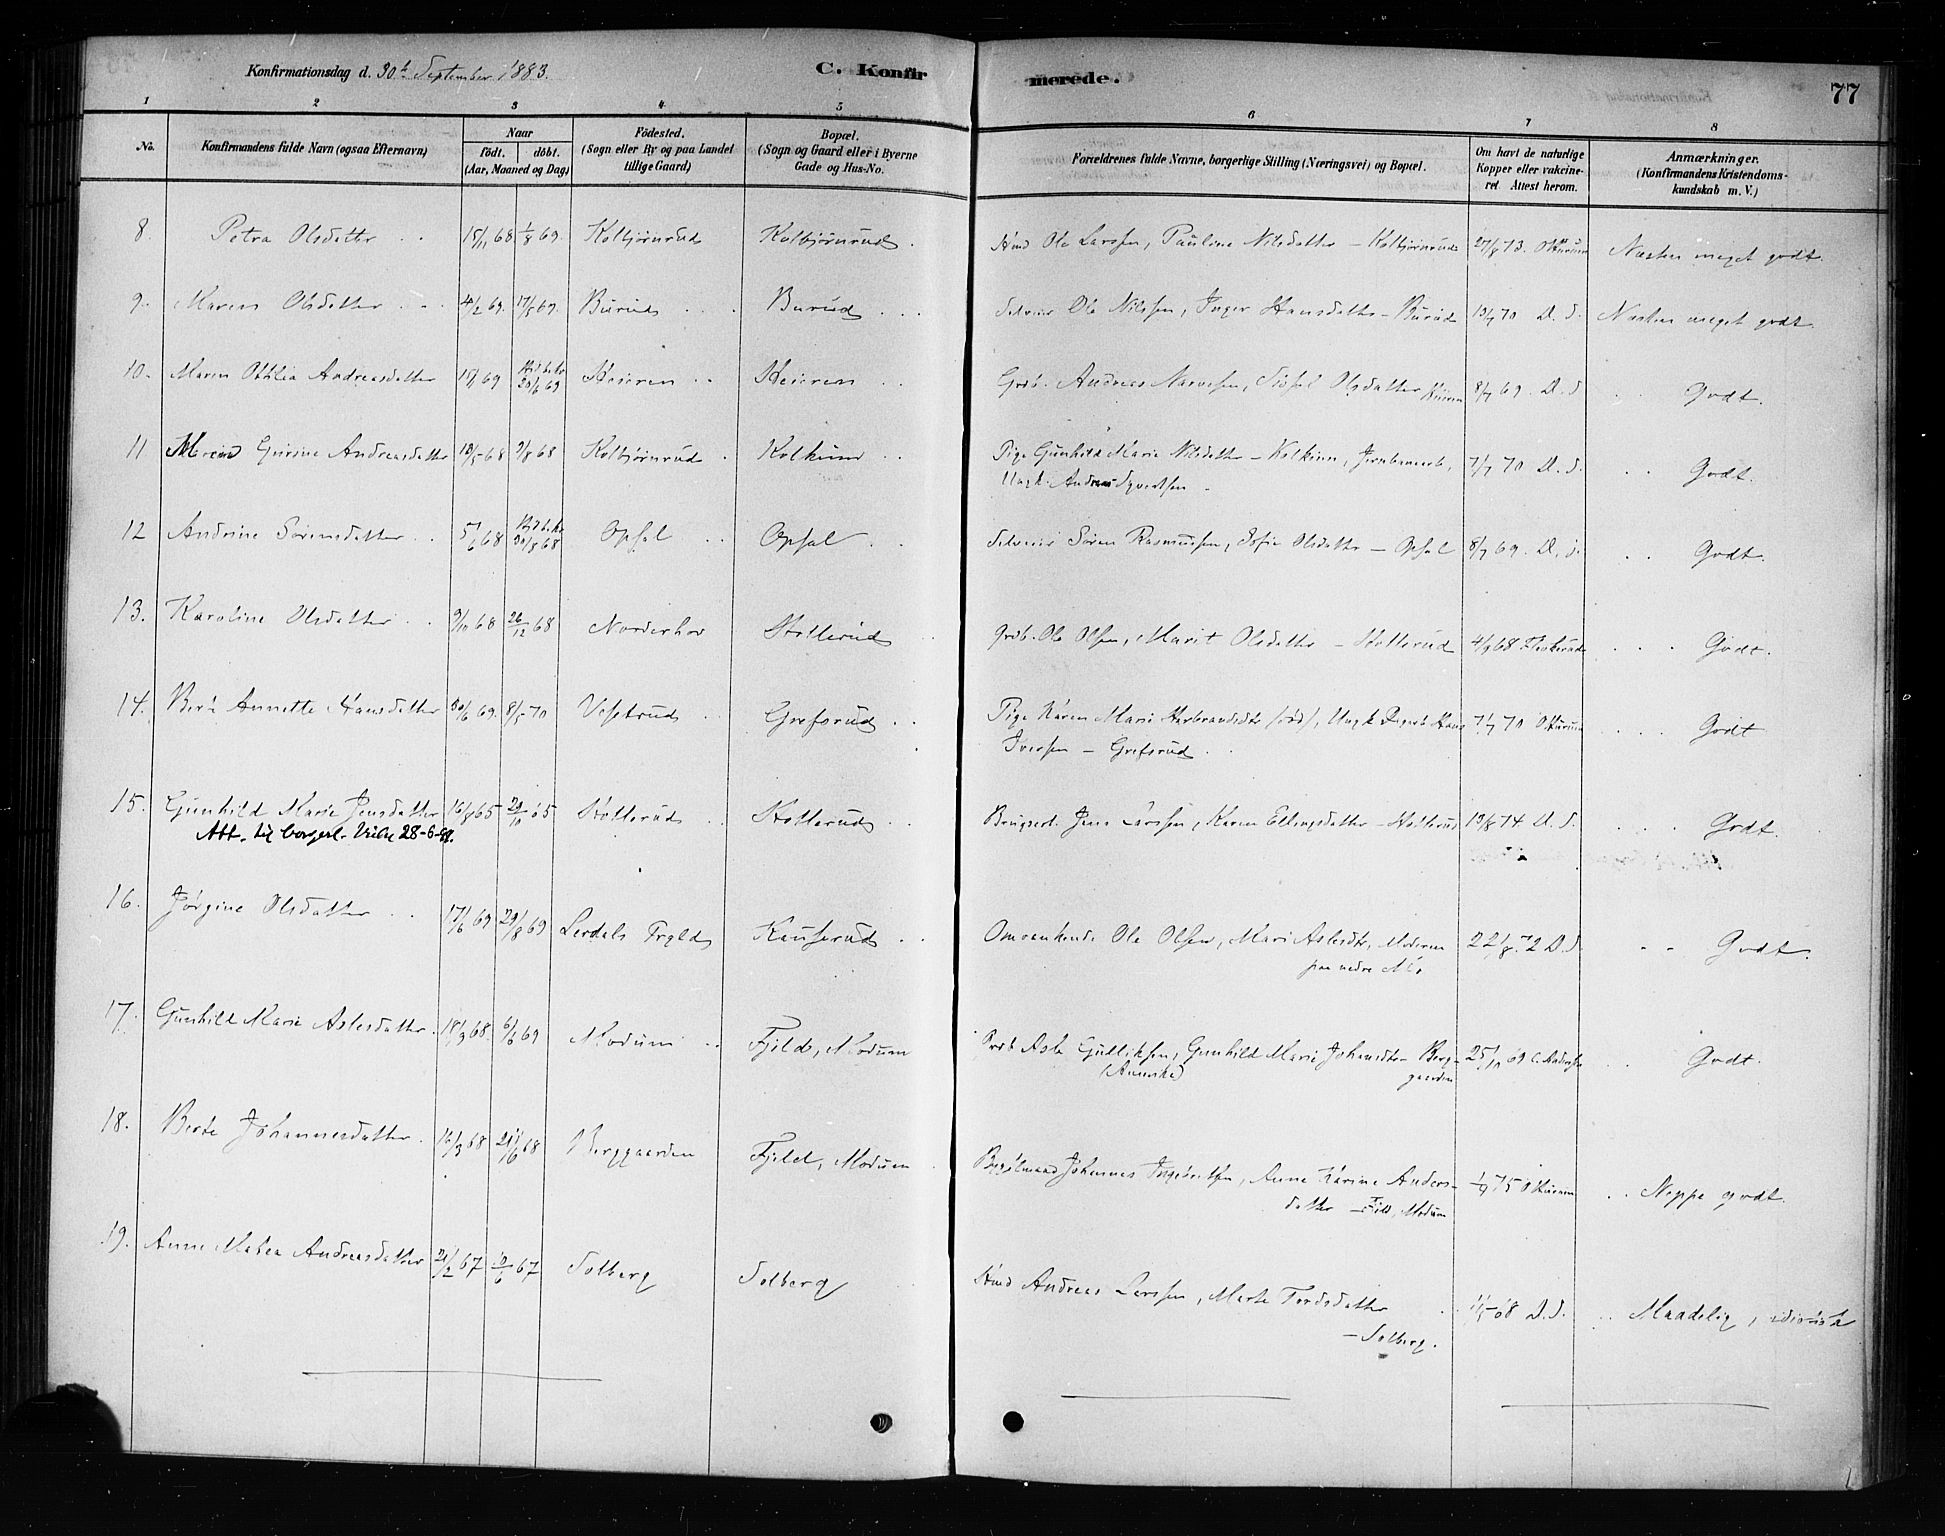 Konfirmationsdag d. 30te September 1883.
C. Konfirmerede.
77
1 2 3 4 5 6 7 8
No.
Konfirmandens fulde Navn (ogsaa Efternavn)
Naar
födt. döbt.
(Aar, Maaned og Dag)
Födested.
(Sogn eller By og paa Landet
tillige Gaard)
Bopæl.
(Sogn og Gaard eller i Byerne
Gade og Hus-No.
Forældrenes fulde Navne, borgerlige Stilling (Næringsvei) og Bopæl.
Om havt de naturlige
Kopper eller vakcine-
ret Attest herom.
Anmærkninger.
(Konfirmandens Kristendoms-
kundskab m. V.)
8. Petra Olsdatter 15/11 68 1/8 69. Kolbjørnrud Kolbjørnrud. Hmd Ole Larssen, Pauline Nilsdatter – Kolbjørnrud 27/8 73. Næsten meget godt.
9. Maren Olsdatter 4/2 69. 17/5 69. Burud Burud Selveier Ole Nilssen, Inger Hansdatter – Burud 13/7 70 D. S. Næsten meget godt.
10. Maren Othlea Andreasdatter 69 30/6 69 Heieren Heieren Grdb. Andreas Sidsel Olsdatter Heieren 8/7 69. D. S Godt.
11 Gurine Andreasdatter 18/5 68 9/8 68 Kolbjørnrud Kolkinn Pige Gunhild Marie Nilsdatter – Kolkinn, Jernbanearb.
Ungk. Andreas Syvertsen 7/7 70 D. S. Godt.
12 Andrine Sørensdatter 5/6 68 30/8 68 Opsal Opsal Selveier Søren Rasmussen, Sofie Olsdatter – Opsal 8/7 69. D. S. Godt.
13. Karoline Olsdatter 9/10 68 26/12 68 Norderhov Stotterud Grdb. Ole Olsen, Marit Olsdatter – Stotterud 4/9 68 Godt.
14. Annette Hansdatter 30/6 69. 8/5 70 Vestrud Grefsrud Pige Karen Marie Ungk Hans
Iversen – Grefsrud 7/7 70 Godt
15. Gunhild Marie Jensdatter 16/8 65 29/10 65 Stotterud Stotterud Jens Larssen, Karen Ellingsdatter – Stotterud 19/8 74. D. S. Godt.
Att. til borgerl. Vielse 28-6-
16. Jørgine Olsdatter 17/6 69 29/8 69 Lerdals Kauserud Omvankende Ole Olsen, Mari Aslesdtr, Moderen
paa nedre 22/8 72 D. S Godt.
17. Gunhild Marie Aslesdatter. 18/3 68. 6/6 69 Modum Fjild, Modum Asle Gulliksen, Gunhild Marie Johansdtr – Berg-
(Amerika) gaarden 25/10 69 Godt.
18. Berte Johannesdatter. 16/3 68 21/6 68 Berggaarden Fjeld, Modum Johannes Ingebretsen, Anne Karine Anders-
datter – Modum 1/9 75 Neppe godt.
19. Anne Mathea Andreasdatter 21/2 67 10/6 67 Solberg Solberg Hmd Andreas Larssen, Marte Tordsdatter
– Solberg. 68 D. S. Maadelig, idiotisk